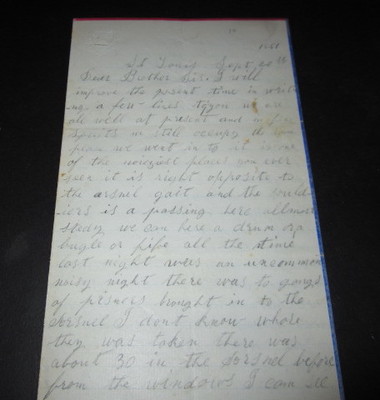 1861
St Louis Sept 20th
Dear Brother Sir. I will
improve the pesent time in writ
ing a few lines to you we are
all well at present and in
spirits we still occupy the
from we went in to at
of the noiseyest places you ever
seen it is right opposite to
the arsnel gait and the sould
iers is a passing here allmost
steady we can here a drum or a
bugle or fife all the time
last night was an uncommon
noisy night there was to gangs
of prisners brought in to the
arsnel I dont know whare
they was taken there was
about 30 in the arsnel before
from the windows I can see